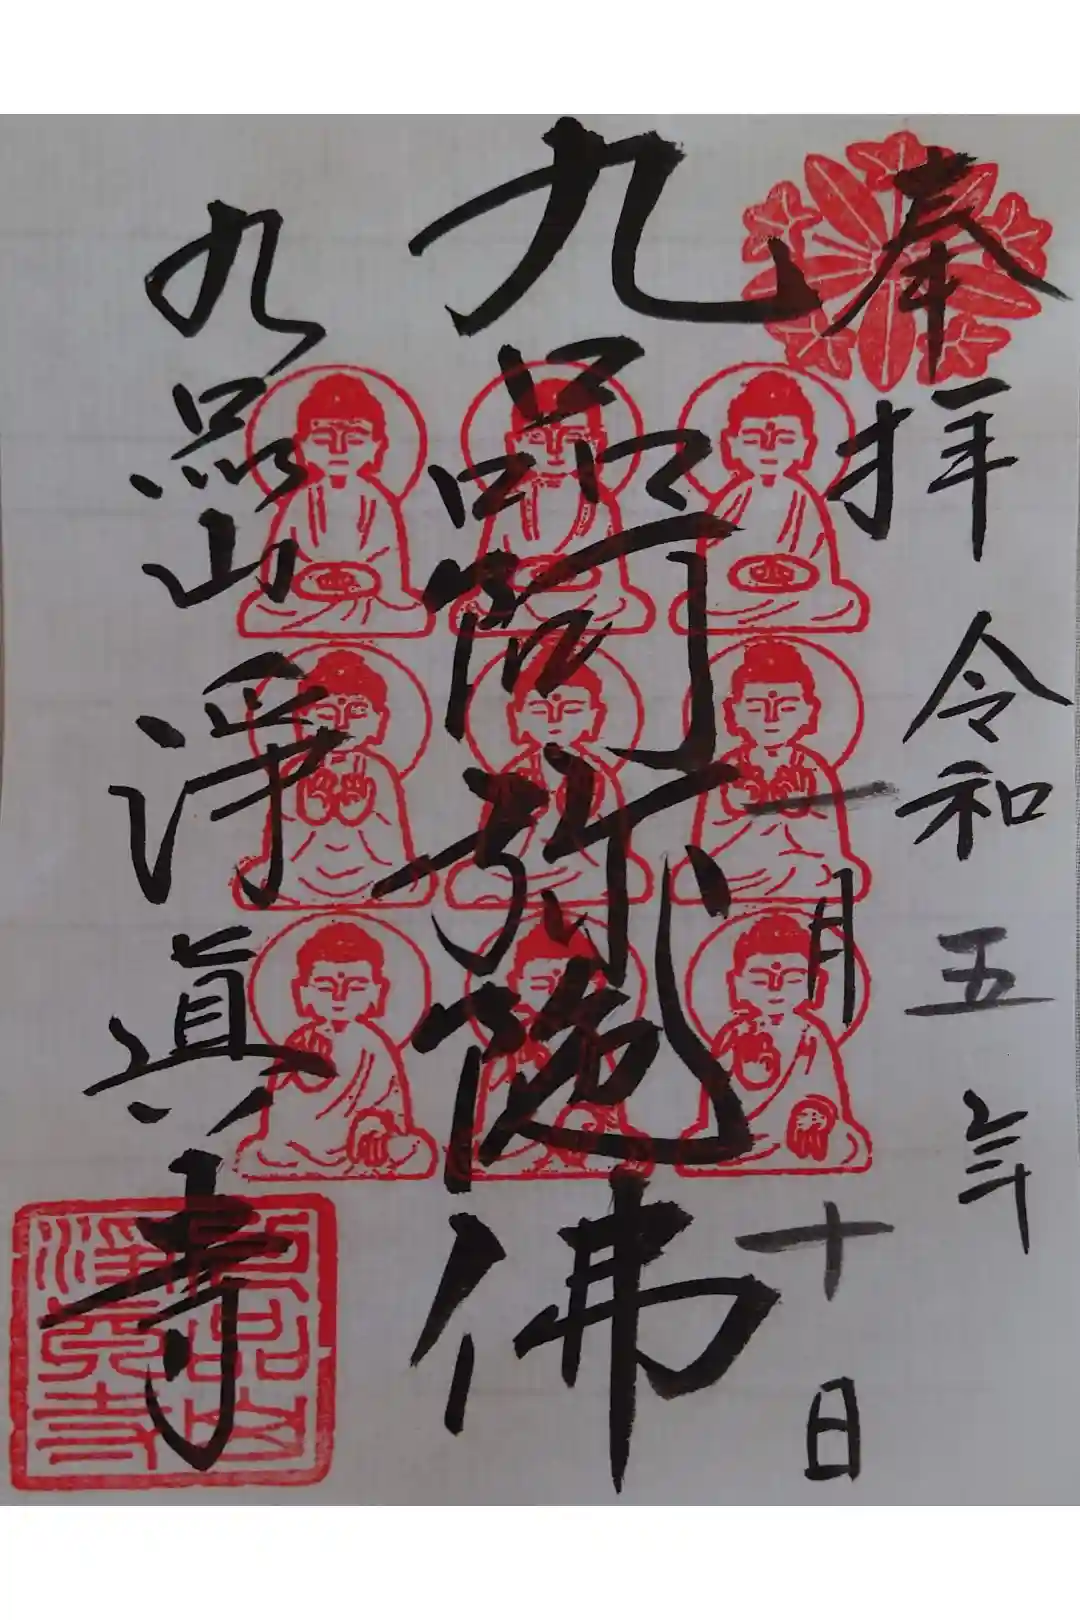 奉拝 令和五年
一月十日
九品阿弥陀佛
九品山 淨眞寺
九品山
淨眞寺